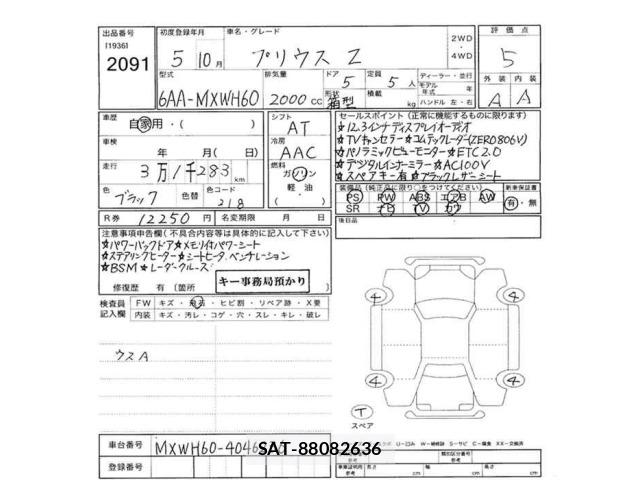 出品番号 初度登録年月 車名・グレード 2WD 評価点
[1936] 5 10月 プリウス Z 4WD 5
2091
型式 排気量 ドア 定員 ディーラー・並行 外装 内装
6AA-MXWH60 2000cc 5 5人 モデル年式 年 A A
形状 箱型 積載 kg ハンドル 左・右
車歴 自家用・( ) シフト AT
車検 年 月( 日) 冷房 AAC
走行 3万1千283km 燃料 ガソリン 軽油 ( )
色 ブラック 色替 色コード 218
R券 12250円 名変期限 月 日
セールスポイント (正常に機能するものに限り)
★12.3インチディスプレイオーディオ
★TVキャンセラー★コムテックレーダー(ZERO806V)
★パノラミックビューモニター★ETC2.0
★デジタルインナーミラー★AC100V
★スペアキー有★ブラックレザーシート
装備品 (純正品に限り○をつけてください) 新車保証書
PS PW ABS エアB AW 有・無
SR ナビ TV カワ
後日品
注意事項申告欄 (不具合内容等は具体的に記入して下さい)
★パワーバックドア★メモリ付パワーシート
★ステアリングヒーター★シートヒータ、ベンチレーション
★BSM★レーダークルーズ
修復歴 有 (箇所 キー事務局預かり
検査員記入欄 FW キズ・飛石・ヒビ割・リペア跡・X要
内装 キズ・汚レ・コゲ・穴・スレ・キレ・破レ
ウスA
4 4
4 4
T
スペア
車台番号 MXWH60-4046
SAT-88082636
登録番号